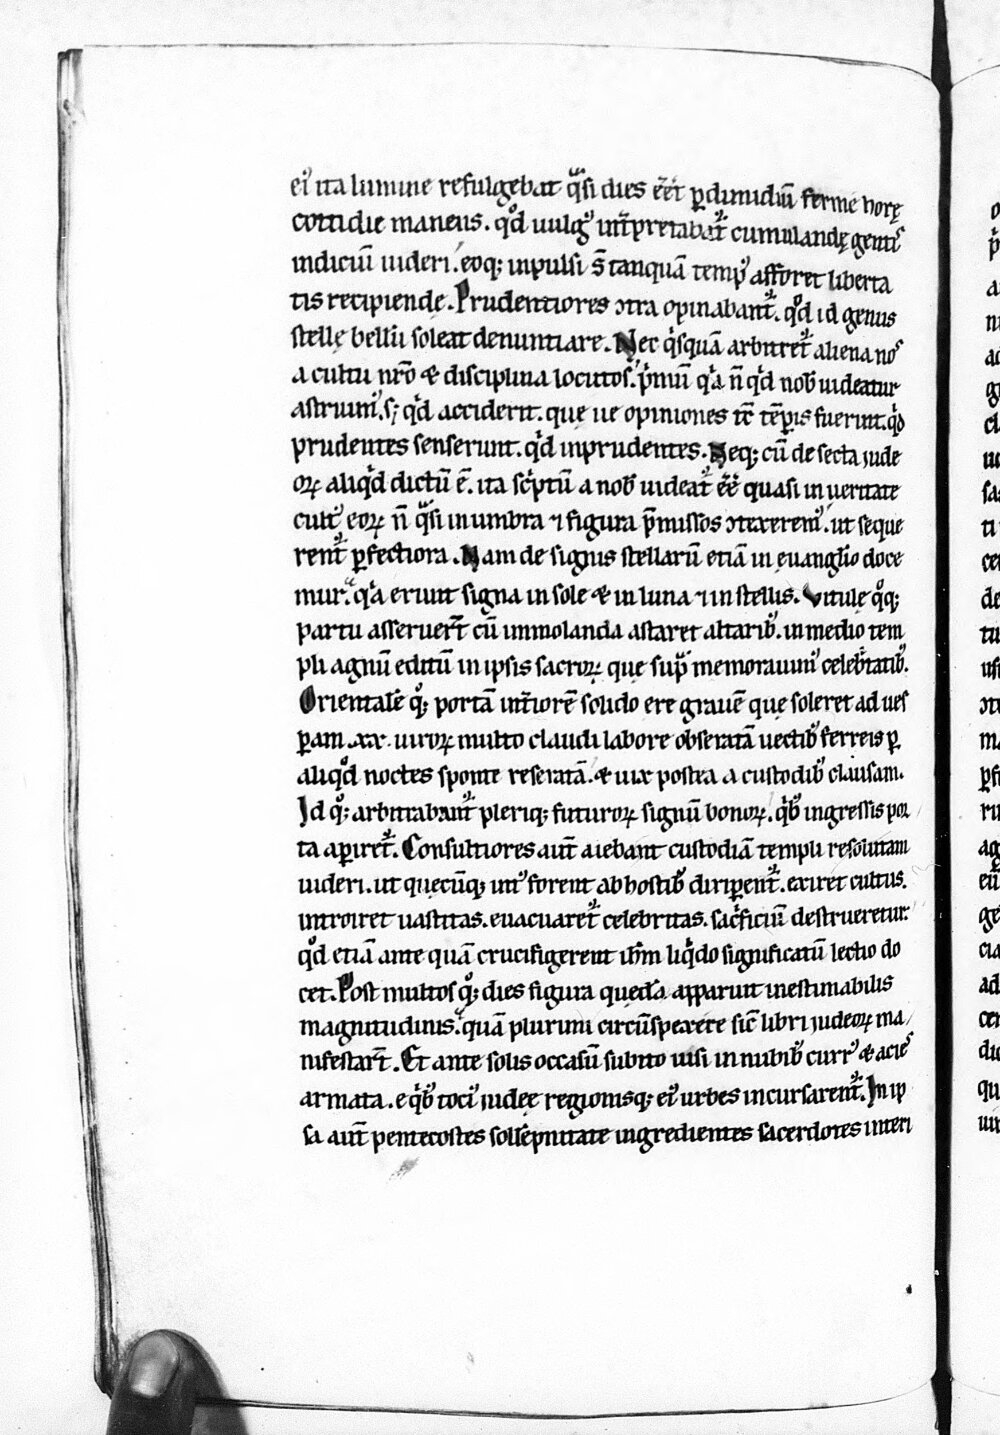 ei᷒ ita lumine refulgebat q̈si dies eēt ꝑ dimidiū ferme horę
cottidie manens. qͦd uulg᷒ int̄pretabat᷑ cumulandę gentis
indiciū uideri. eoq; inpulsi s̄ tanquā temp᷒ afforet liberta
tis recipiende. Prudentiores ɔtra opinabant᷑. qͦd id genus
stellę bellū soleat denuntiare. Nec q̇squā arbitret᷑ aliena nos
a cultu nr̄o & disciplina locutos. p̄mū q̇a n̄ qͦd nob̄ uideatur
astruim᷒. s; qͦd acciderit. que ue opiniones tc̄ tēpis fuerint. qͦd
prudentes senserunt. qͦd inprudentes. Neq; cū de secta iude
oꝝ aliqͦd dictū ē. ita sc̄ptū a nob̄ uideat᷑ eēe quasi in ueritate
cult᷒ eoꝝ n̄ q̈si in umbra ⁊ figura p̄missos ɔtexerem᷒. ut seque
rent᷑ ꝑfectiora. Nam de signis stellarū etiā in euanglio doce
mur. q̇a erunt signa in sole & in luna ⁊ in stellis. Vitulę qͦq;
partu asseruer̄t cū immolanda astaret altarib᷒. in medio tem
pli agnū editū in ipsis sacroꝝ. que sup̄ memorauim᷒ celeb̄tatib᷒.
Orientale qͦ; portā int̄iorē solido ere grauē que soleret ad ues
ꝑam .xx. uiroꝝ multo claudi labore obseratā uectib᷒ ferreis ꝑ
aliqͦd noctes sponte reseratā. & uix postea a custodib᷒ clausam.
Id qͦ; arbitrabant᷑ pleriq; futuroꝝ signū bonoꝝ. q̇b᷒ ingressis por
ta aꝑiret᷑. Consultiores aut̄ aiebant custodiā templi resolutam
uideri. ut quęcūq; int᷒ forent ab hostib᷒ diriꝑent᷑. exiret cultus.
introiret uastitas. euacuaret᷑ celebritas. sac̄ficiū destrueretur.
qͦd etiā ante quā crucifigerent ihm̄ liq̇do significatū lectio do
cet. Post multos qͦ; dies figura quedā apparuit inestimabilis
magnitudinis. quā plurimi circūspexere sic̄ libri iudeoꝝ ma
nifestar̄t. Et ante solis occasū subito uisi in nubib᷒ curr᷒ & acies
armata. e q̇b᷒ toci᷒ iudeę regionisq; ei᷒ urbes incursarent᷑. In ip
sa aut̄ pentecostes sollēpnitate ingredientes sacerdotes interi